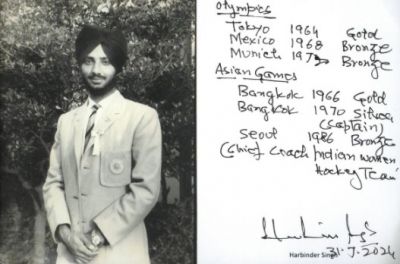 Olympics
Tokyo 1964 Gold
Mexico 1968 Bronze
Munich 1972 Bronze
Asian Games
Bangkok 1966 Gold
Bangkok 1970 Silver
(Captain)
Seoul 1986 Bronze
(Chief) Coach Indian women
Hockey Team
Harbinder Singh
31.J.2024